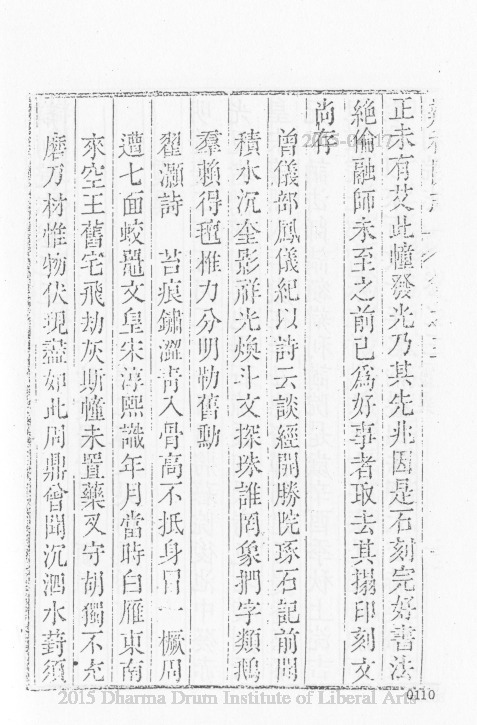 正未有艾此幢發光乃其先兆因是石刻完好書法
絶倫融師未至之前已爲好事者取去其搨印刻文
尚存
曾儀部鳳儀紀以詩云談經開勝院琢石記前聞
積水沉奎影祥光煥斗文探珠誰罔象捫字類鵝
羣賴得毱椎力分明勒舊勳
翟灝詩　苔痕鏽澀青入骨高不抵身囗一橛周
遭七面蛟鼉文皇宋淳熙識年月當時白雁東南
來空王舊宅飛劫灰斯幢未置藥叉守胡獨不充
磨刀材惟物伏現葢如此周鼎會聞沉泗水葑須
2015 Dharma Drum Institute of Liberal Arts
0110